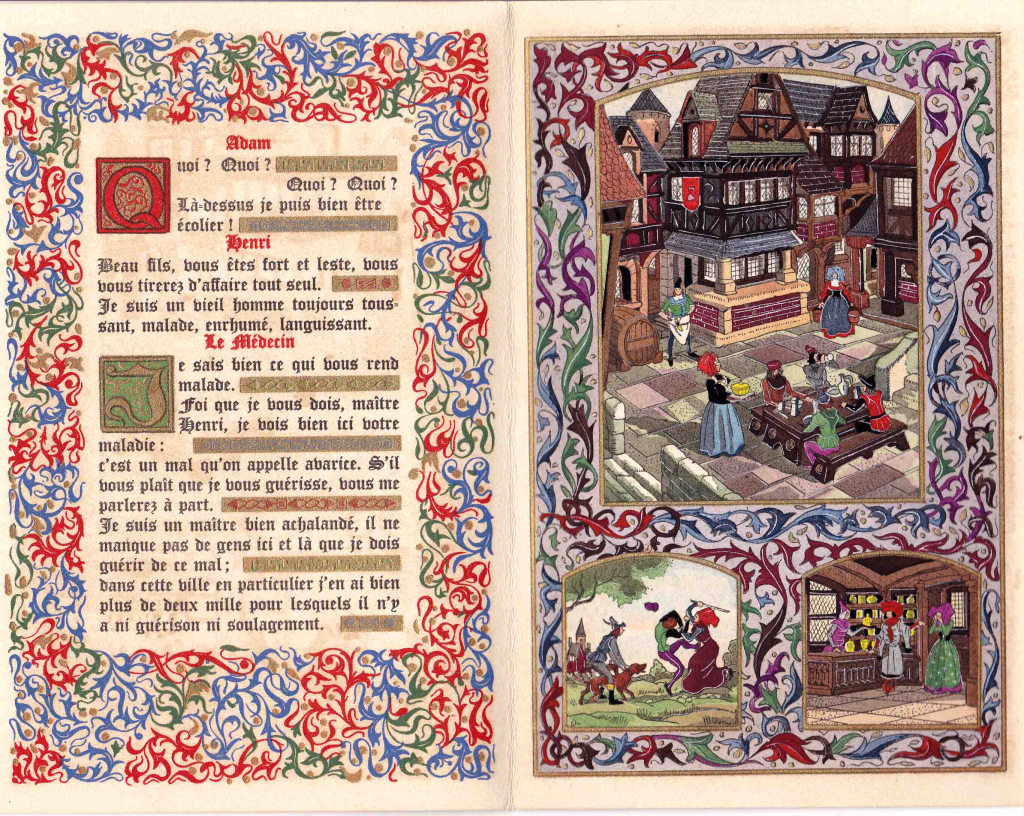 Adam
Quoi ? Quoi ?
Quoi ? Quoi ?
Là-dessus je puis bien être
écolier !
Henri
Beau fils, vous êtes fort et leste, vous
vous tirerez d'affaire tout seul.
Je suis un vieil homme toujours tous-
sant, malade, enrhumé, languissant.
Le Médecin
Je sais bien ce qui vous rend
malade.
Foi que je vous dois, maître
Henri, je vois bien ici votre
maladie :
c'est un mal qu'on appelle avarice. S'il
vous plaît que je vous guérisse, vous me
parlerez à part.
Je suis un maître bien achalandé, il ne
manque pas de gens ici et là que je dois
guérir de ce mal ;
dans cette ville en particulier j'en ai bien
plus de deux mille pour lesquels il n'y
a ni guérison ni soulagement.